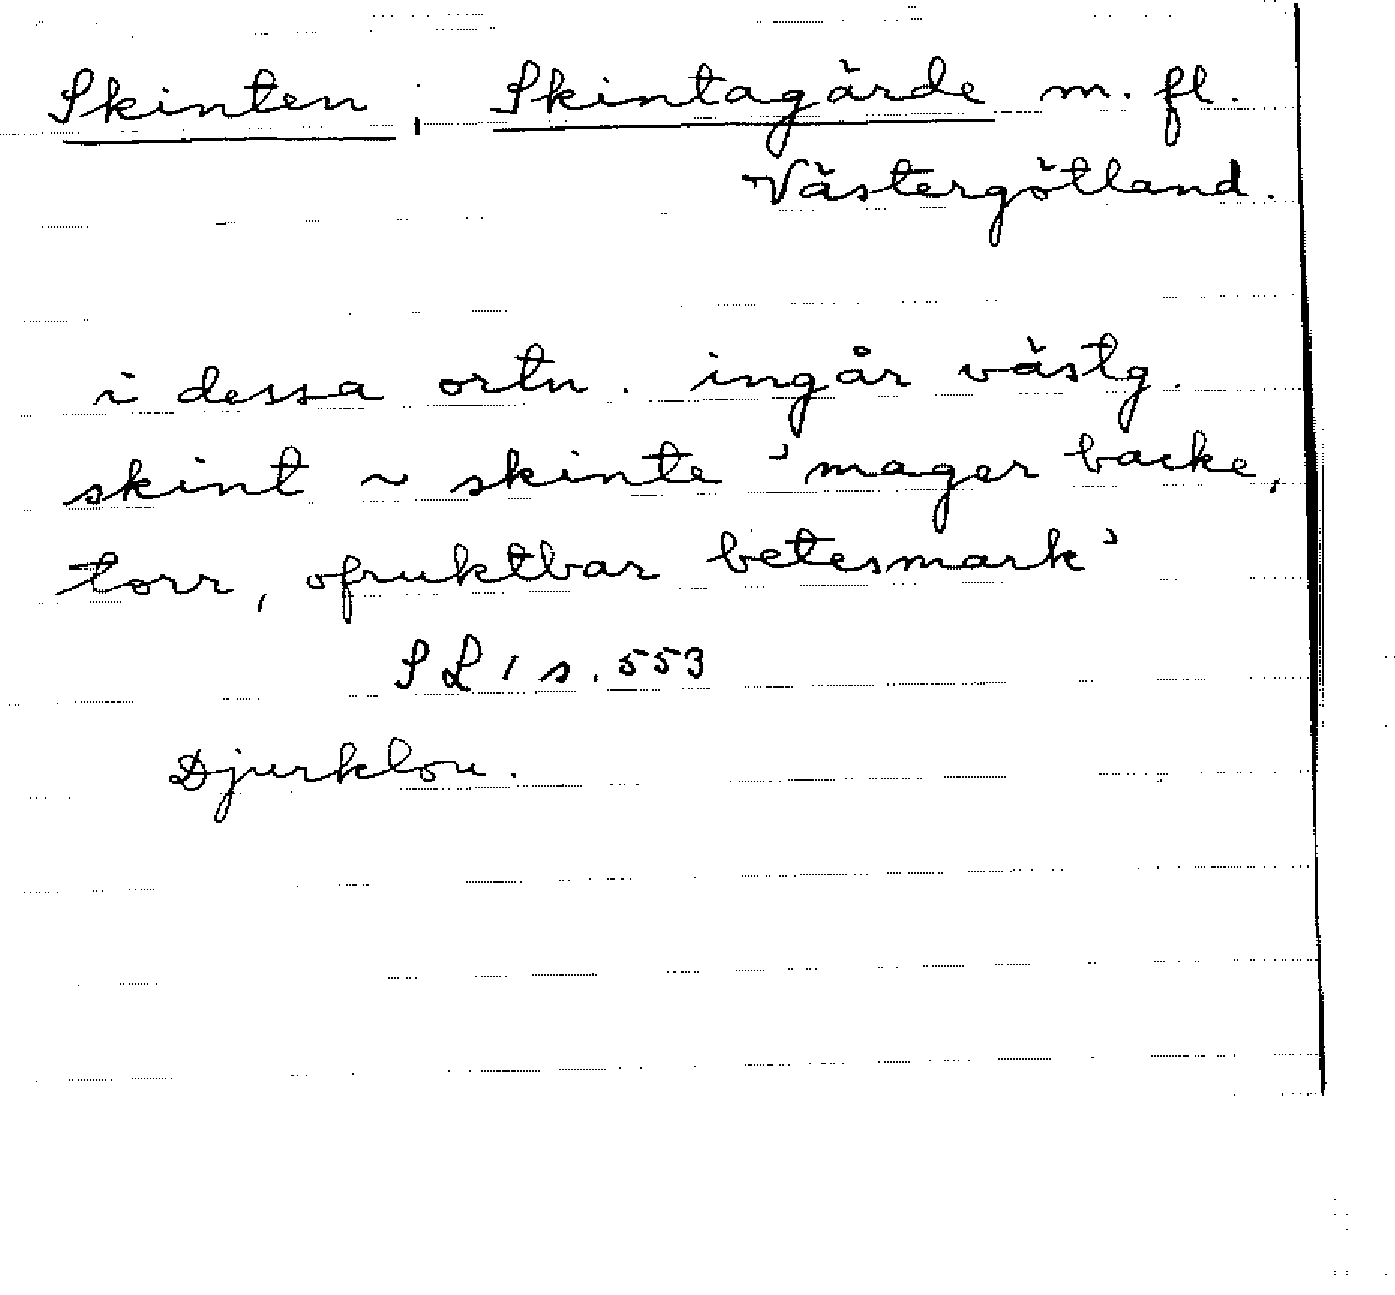 Skinten, Skintagärde m. fl.
Västergötland.
i dessa ortn. ingår västg.
skint ~ skinte 'mager backe,
torr, ofruktbar betesmark'
SL 1 s. 553
Djurklou.